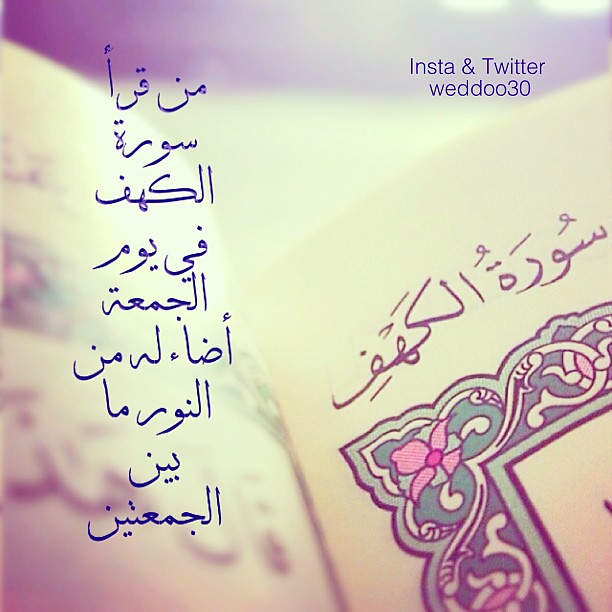 من قرأ
سورة
الكهف
في يوم
الجمعة
أضاء له من
النور ما
بين
الجمعتين
Insta & Twitter
weddoo30
سُورَةُ الكَهَفِ